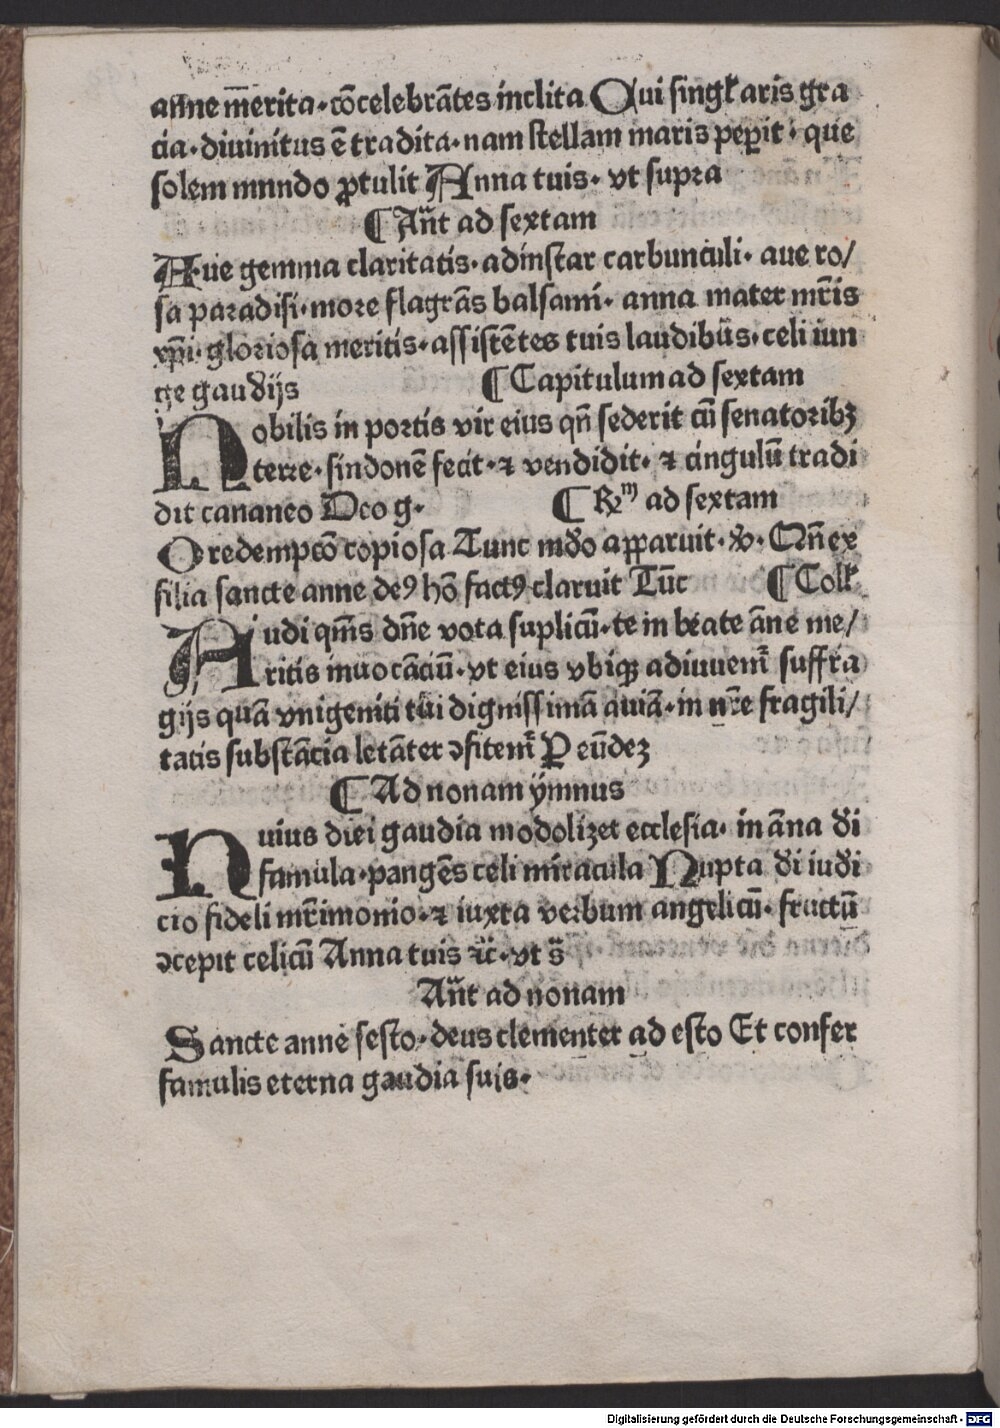 anne m̄erita· cōcelebrātes inclita Qui singꝉaris gra
cia· diuinitus ē tradita· nam stellam maris peꝑit · que
solem mnndo ꝓtulit Anna tuis· vt supra
¶ An̄t ad sextam
Aue gemma claritatis· adinstar carbunculi· aue ro/
sa paradisi· more flagrās balsami· anna mater mr̄is
xp̄i· gloriosa meritis· assistētes tuis laudibus· celi iun
ge gaudijs ¶ Capitulum ad sextam
Nobilis in portis vir eius qn̄ sederit cū senatoribꝫ
terre· sindonē fecit· ⁊ vendidit· ⁊ cingulū tradi
dit cananeo Deo g· ¶ Rm̄ ad sextam
O redempcō copiosa Tunc mdo apparuit· ℣· Qn̄ ex
filia sancte anne deꝰ hō factꝰ claruit Tūc ¶ Colꝉ
Audi qm̄s dn̄e vota suplicū· te in beate āne me/
ritis inuocāciū· vt eius vbiqꝫ adiuuem̄ suffra
gijs quā vnigeniti tui dignissimā auiā· in nr̄e fragili/
tatis substācia letāter ꝯfitem̄ P eūdeꝫ
¶ Ad nonam ẏmnus
Huius diei gaudia modolizet ecclesia· in āna di
famula· pangēs celi miracula Nupta di iudi
cio fideli mr̄imonio· ⁊ iuxta verbum angelicū· fructū
ꝯcepit celicū Anna tuis ⁊c̄· vt s̄
An̄t ad nonam
Sancte anne festo· deus clementer ad esto Et confer
famulis eterna gaudia suis·
Digitalisierung gefördert durch die Deutsche Forschungsgemeinschaft - DFG